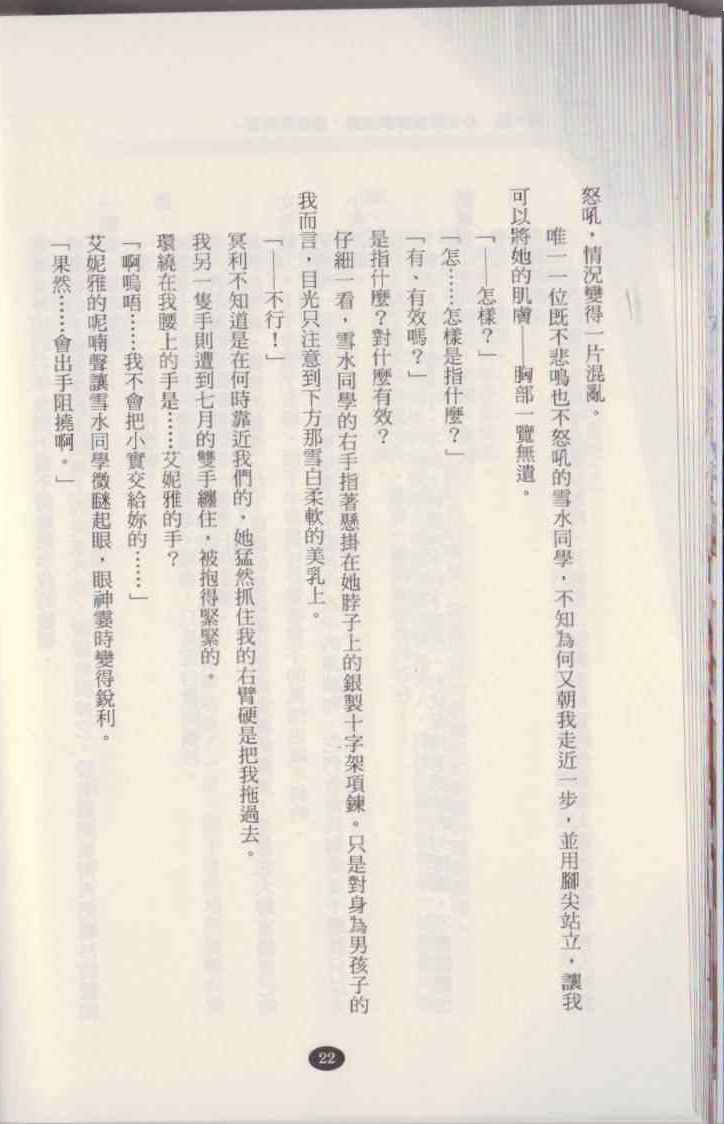 怒吼，情況變得一片混亂。
唯一一位既不悲鳴也不怒吼的雪水同學，不知為何又朝我走近一步，並用腳尖站立，讓我
可以將她的肌膚——胸部一覽無遺。
「——怎樣？」
「怎……怎樣是指什麼？」
「有、有效嗎？」
是指什麼？對什麼有效？
仔細一看，雪水同學的右手指著懸掛在她脖子上的銀製十字架項鍊。只是對身為男孩子的
我而言，目光只注意到下方那雪白柔軟的美乳上。
「——不行！」
冥利不知道是在何時靠近我們的，她猛然抓住我的右臂硬是把我拖過去。
我另一隻手則遭到七月的雙手纏住，被抱得緊緊的。
環繞在我腰上的手是……艾妮雅的手？
「啊嗚唔……我不會把小實交給妳的……」
艾妮雅的呢喃聲讓雪水同學微瞇起眼，眼神霎時變得銳利。
「果然……會出手阻撓啊。」
22